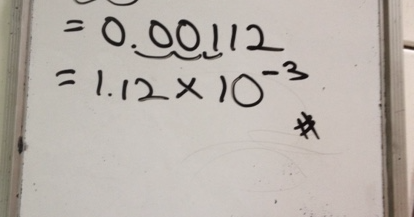 = 0.00112
= 1.12 × 10⁻³
#